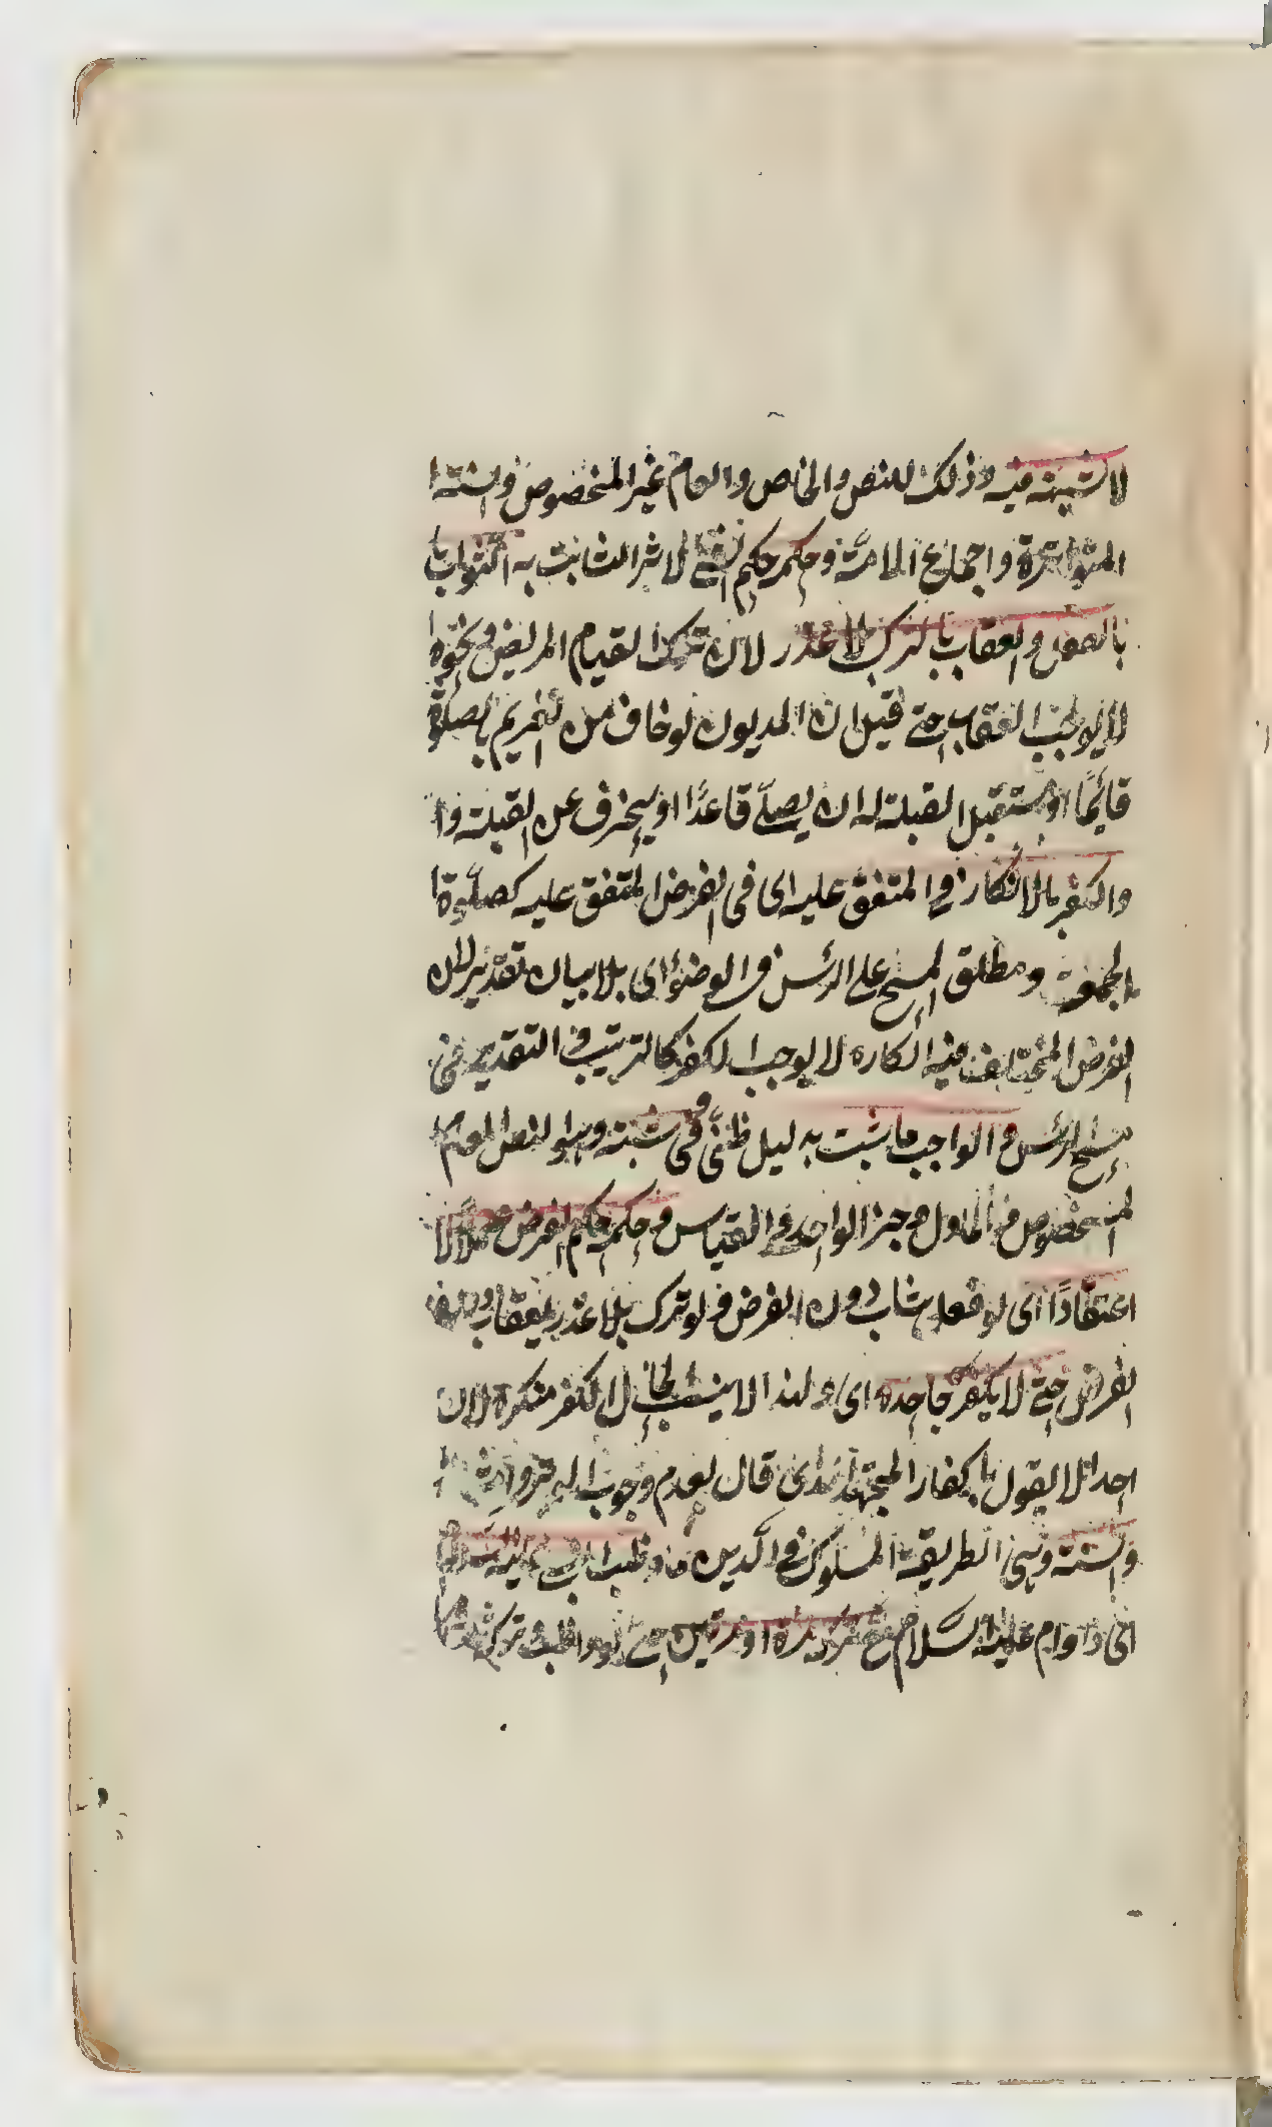 لا شبهة فيه وذلك للنص والخاص والعام غير المخصوص والسنة ا
المتواترة واجماع الامة وحكمه حكم الاثر الثابت به الثواب با
بالفعل والعقاب بالترك بلا عذر لان ترك القيام المريض ونحوه
لا يوجب العقاب حتى قيل ان المديون لو خاف من الغريم بالصلوة
قائمًا او مستقبل القبلة له ان يصلّى قاعدًا او ينحرف عن القبلة وا
والكفر بالانكار فى المتفق عليه اى فى الفرض المتفق عليه كصلوة ا
الجمعة ومطلق المسح على الرئس فى الوضوء اى بلا بيان تقدير لان
الفرض المختلف فيه انكاره لا يوجب الكفر كالترتيب والتقدير فى
مسح الرئس والواجب ما ثبت به ليل ظنّى فى شبهة وهو النص العام
المخصوص والماول وخبر الواحد والقياس وحكمه حكم الفرض عملًا لا
اعتقادًا اى لو فعله يثاب دون الفرض ولو ترك بلا عذر يعاقب دون
الفرض حتى لا يكفر جاحده اى ولهذا لا ينسب الى الكفر منكره لان
احدا لا يقول باكفار المجتهد الذى قال بعدم وجوب الوتر
والسنة وهى الطريقة المسلوك فى الدين ما واظب النبى عليه السلام
اى داوم عليه السلام مع تركه مرة او مرتين حتى لو واظب